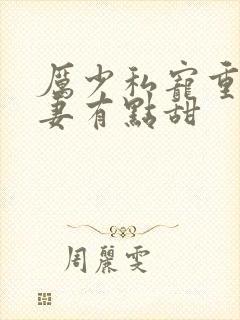 厲少私寵重
妻有點甜
周麗雯